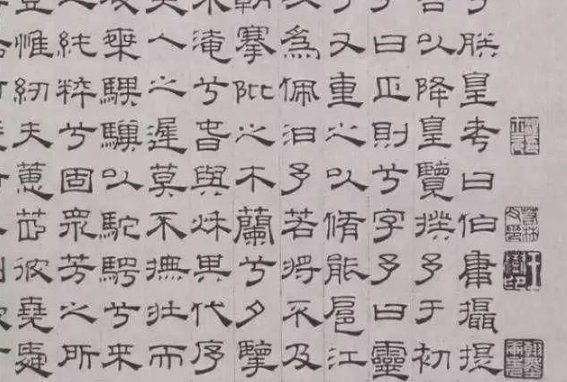 兮朕皇考曰伯庸攝提
吾以降皇覽揆予于初
予曰正則兮字予曰靈
兮又重之以脩能扈江
為佩汨予若將不及
朝搴阰之木蘭兮夕擥
不淹兮春與秌其代序
美人之遲莫不撫壯而
乘騏驥以駝騁兮來
之純粹兮固眾芳之所
豈惟紉夫蕙茝彼堯舜